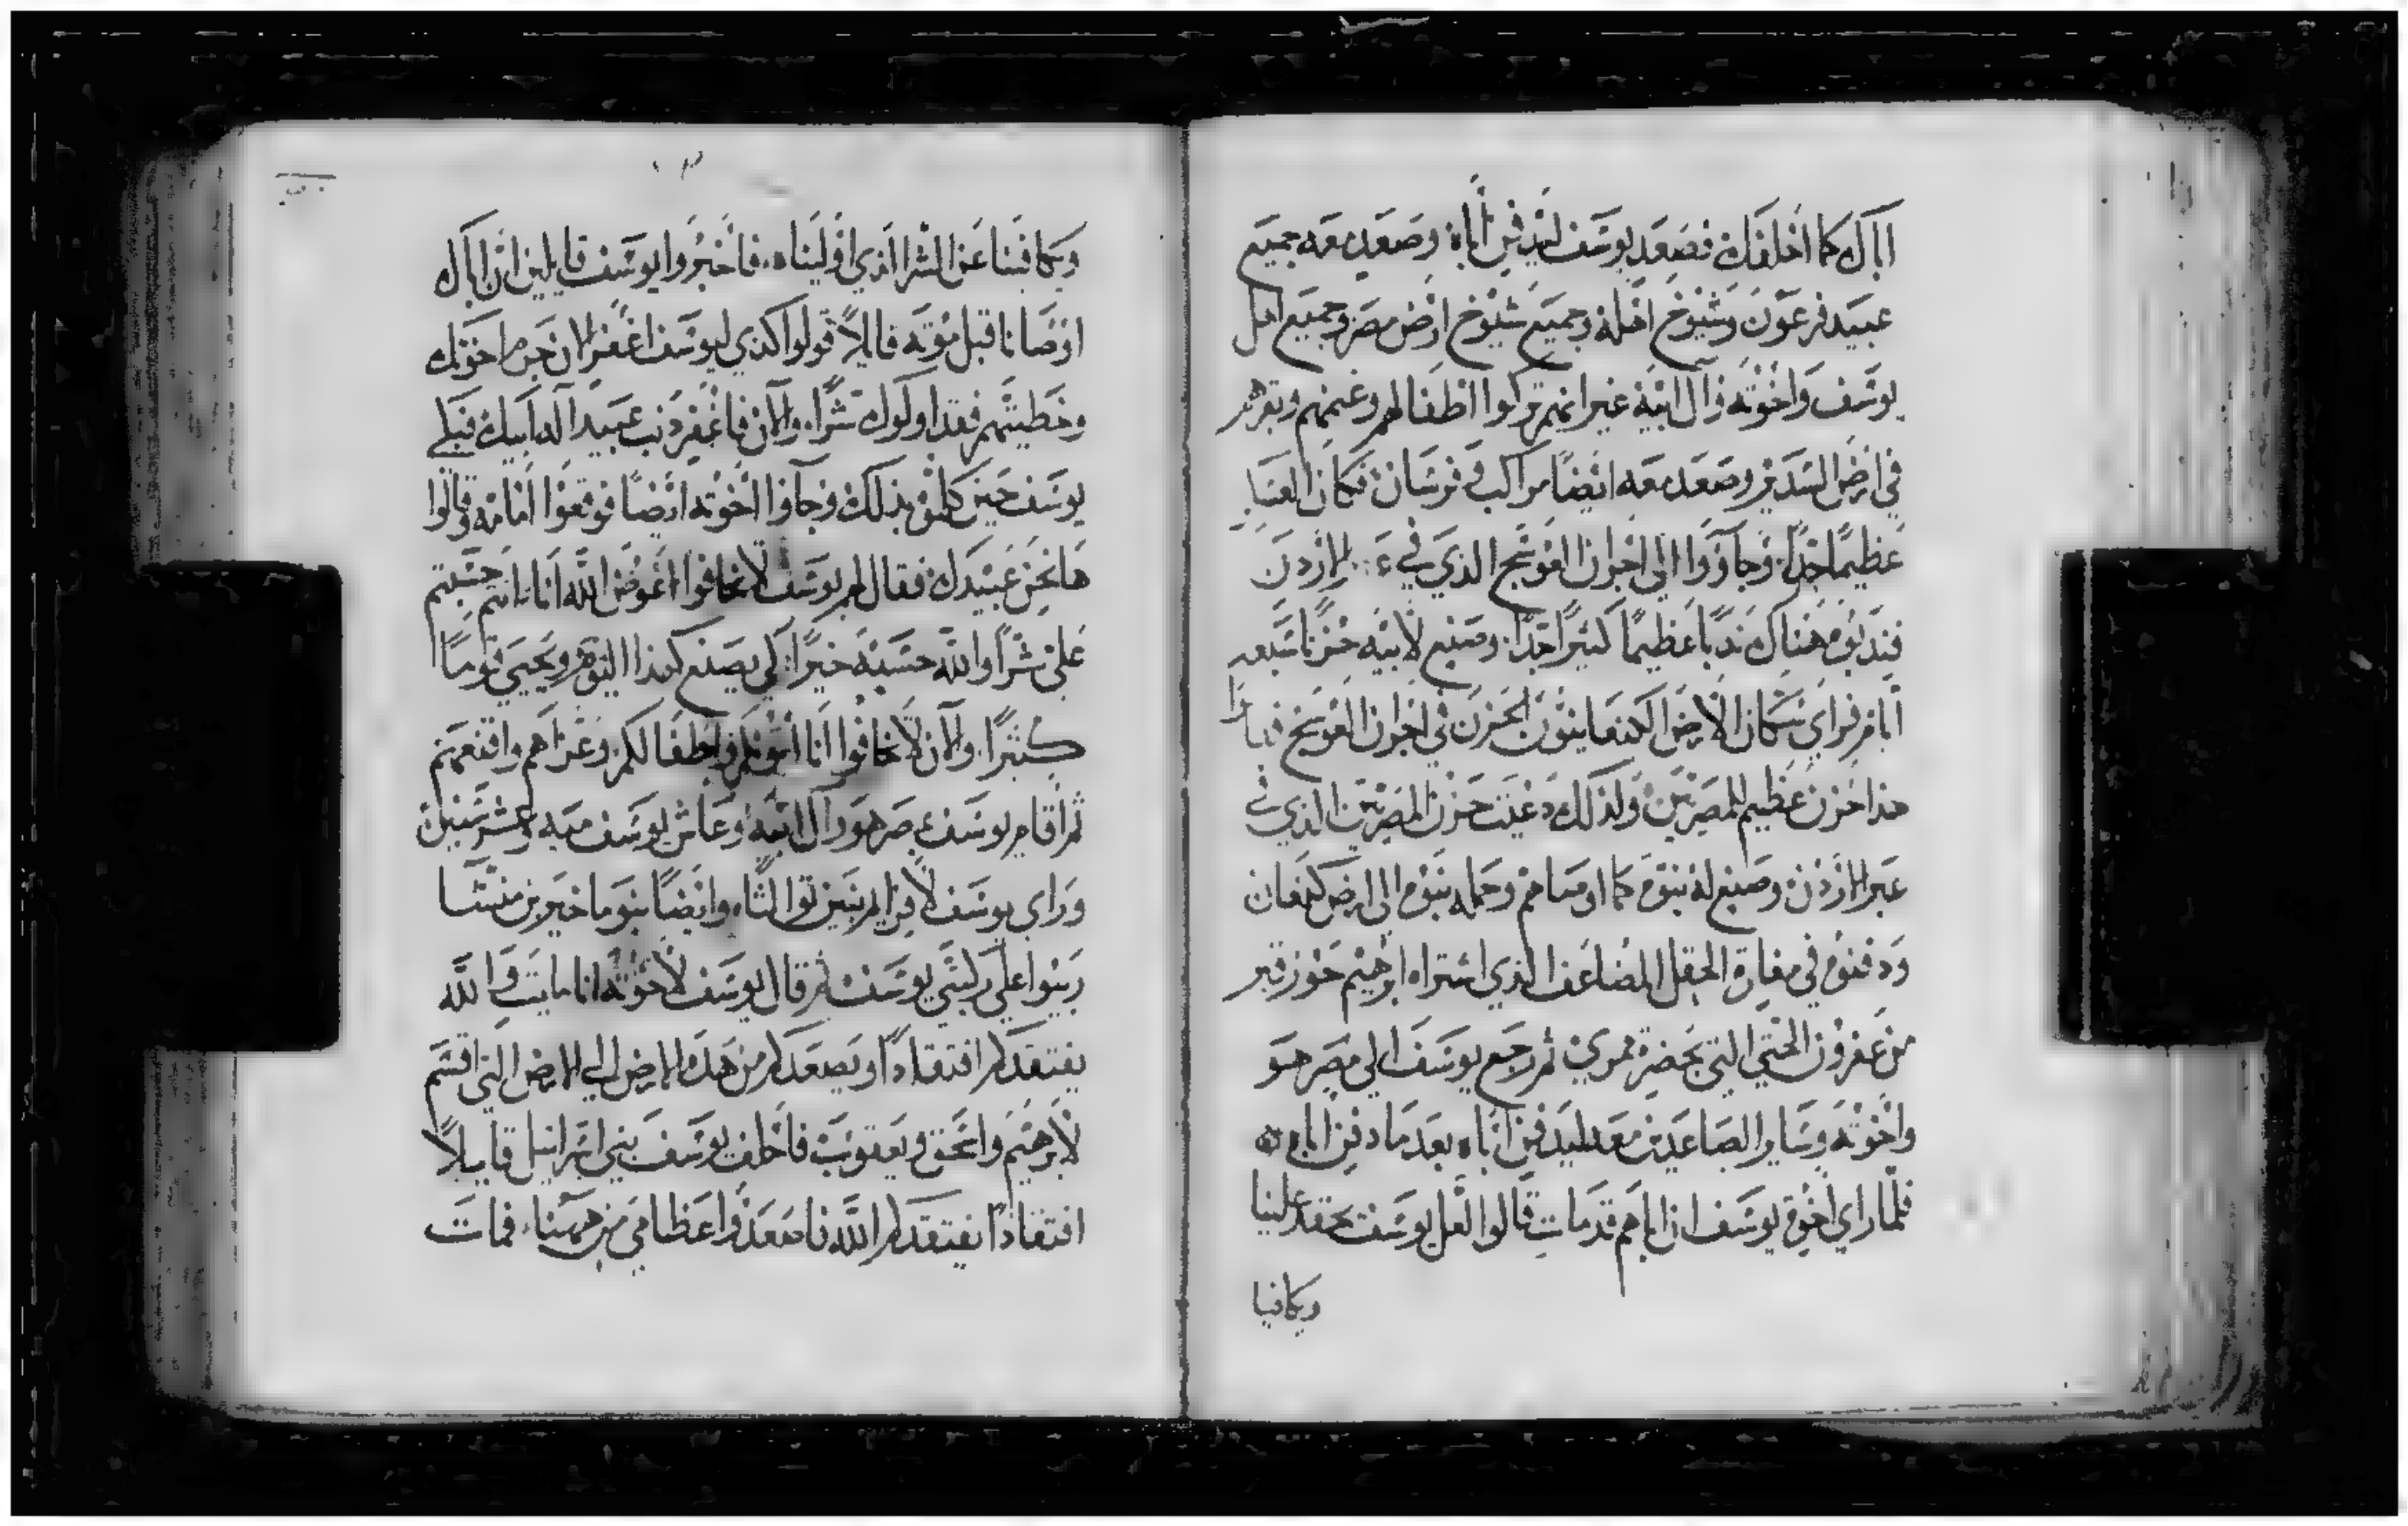 اباك كما احلفك فصعد يوسف ليدفن أباه وصعد معه جميع
عبيد فرعون وشيوخ اهله وجميع شيوخ ارض مصر وجميع اهل
يوسف واخوته وآل ابيه غير انهم تركوا اطفالهم وغنمهم وبقرهم
في ارض السدير وصعد معه ايضًا مراكب وفرسان فكان العسكر
عظيمًا جدًا وجاؤوا الي اجران العوسج الذي في عبر الاردن
فندبوه هناك ندبًا عظيمًا كثيرًا جدًا وصنع لابيه حزنًا سبعه
أيام فراي سكان الارض الكنعانيون الحزن في اجران العوسج فقالوا
هذا حزن عظيم للمصريين ولذلك دعيت حزن المصريين الذي في
عبر الاردن وصنع له بنوه كما اوصاهم وحمله بنوه الي ارض كنعان
ودفنوه في مغارة الحقل المضاعف الذي اشتراه ابرهيم حوز قبر
من عفرون الحتي التي بحضرة ممري ثم رجع يوسف الي مصر هو
واخوته وساير الصاعدين معه ليدفن اباه بعد ما دفن اباه
فلما راي اخوة يوسف ان اباهم قد مات قالوا لعل يوسف يحقد علينا
ويكافينا
ويكافينا عن الشر الذي اوليناه فاخبروا يوسف قايلين ان اباك
اوصانا قبل موته قايلاً قولوا كذي ليوسف اغفر الان جرم اخوتك
وخطيتهم فقد اولوك شرًا والآن فاغفر ذنب عبيد اله ابيك فبكي
يوسف حين كلموه بذلك وجاؤا اخوته ايضًا فوقعوا امامه وقالوا
ها نحن عبيدك فقال لهم يوسف لا تخافوا اعوض الله انا انتم حسبتم
علي شرًا والله حسبه خيرًا لكي يصنع كهذا اليوم ويحيي قومًا
كثيرًا والآن لا تخافوا انا اقوتكم واطفالكم وعزاهم واقنعهم
ثم اقام يوسف بمصر هو وآل ابيه وعاش يوسف مايه وعشر سنين
وراي يوسف لافرايم بنين ثوالثا وايضًا بنو ماخير بن منسا
ربيوا علي ركبتي يوسف ثم قال يوسف لاخوته انا مايت والله
يفتقدكم افتقادًا ويصعدكم من هذه الارض الي الارض التي اقسم
لابرهيم واسحق ويعقوب فاحلف يوسف بني اسرائيل قايلاً
افتقادًا يفتقدكم الله فاصعدوا عظامي من ههنا فمات